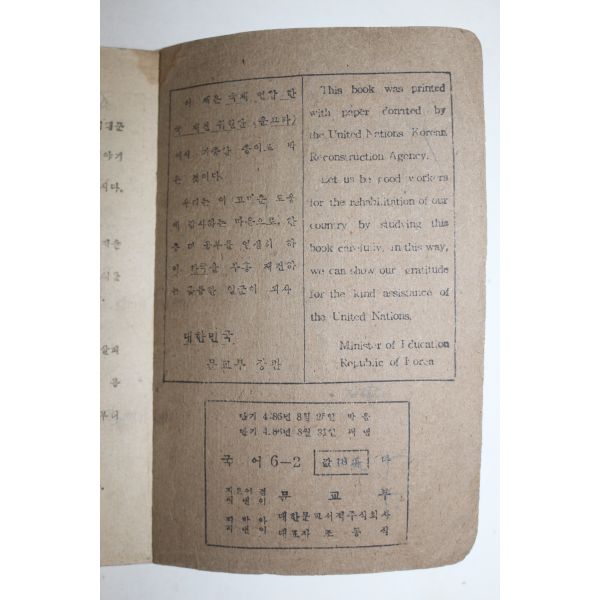 이 책은 국제 연합 한
국 재건 위원단 (운끄라)
에서 기증한 종이로 박
은 것이다.
우리는 이 고마운 도움
에 감사하는 마음으로, 한
층 더 공부를 열심히 하
여, 한국을 부흥 재건하
는 훌륭한 일꾼이 되자
대한민국
문교부 장관
This book was printed
with paper donated by
the United Nations Korean
Reconstruction Agency.
Let us be good workers
for the rehabilitation of our
country by studying this
book carefully. in this way,
we can show our gratitude
for the kind assistance of
the United Nations.
Minister of Education
Republic of Korea
단기 4286년 8월 25일 박음
단기 4286년 8월 31일 펴냄
국 어 6—2 값 18
문 교 부
대한문교서적주식회사
대표자 조 동 식